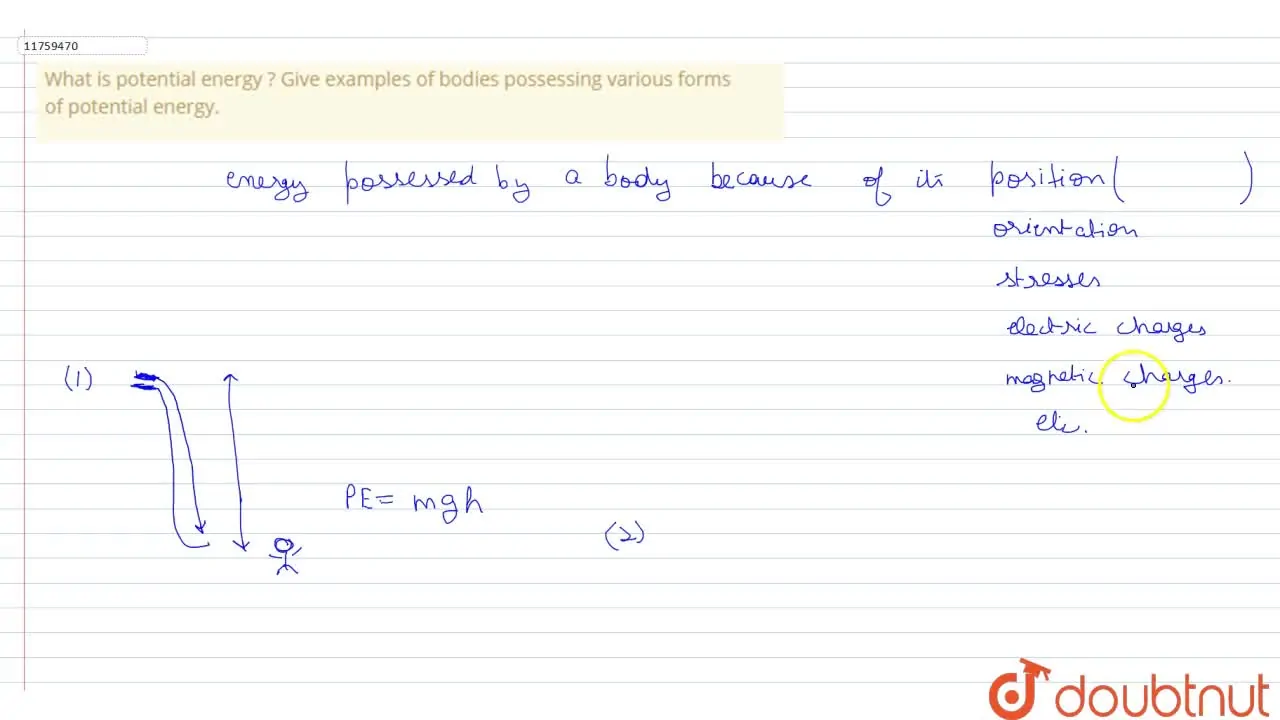 11759470
What is potential energy ? Give examples of bodies possessing various forms
of potential energy.
energy possessed by a body because of its position ( )
orientation
stresses
electric charges
(1)
magnetic charges.
etc.
PE = mgh
(2)
doubtnut